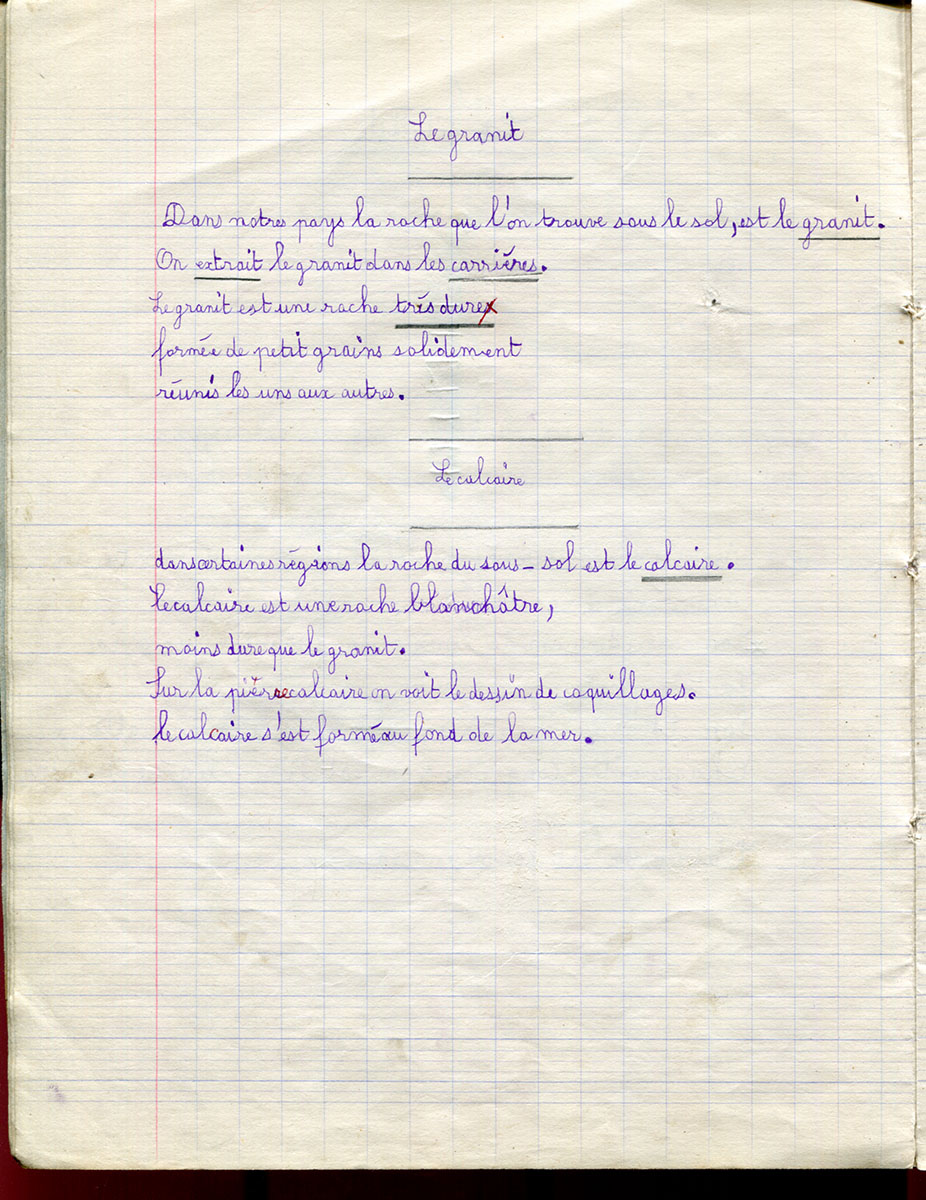 Le granit
Dans notres pays la roche que l'on trouve sous le sol, est le granit.
On extrait le granit dans les carriéres.
Le granit est une roche trés dures
formée de petit grains solidement
réunis les uns aux autres.
Le calcaire
dans certaines régions la roche du sous-sol est le calcaire.
le calcaire est une roche blanchâtre,
moins dure que le granit.
Sur la pierre calcaire on voit le dessin de coquillages.
le calcaire s'est formé au fond de la mer.